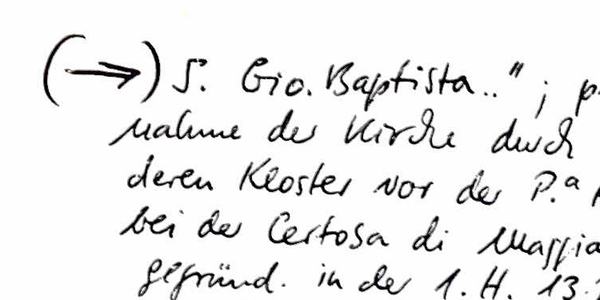 (→) S. Gio. Baptista.." ; p
nahme der Kirche durch
deren Kloster vor der P.a
bei der Certosa di Maggia
gegründ. in der 1. H. 13.